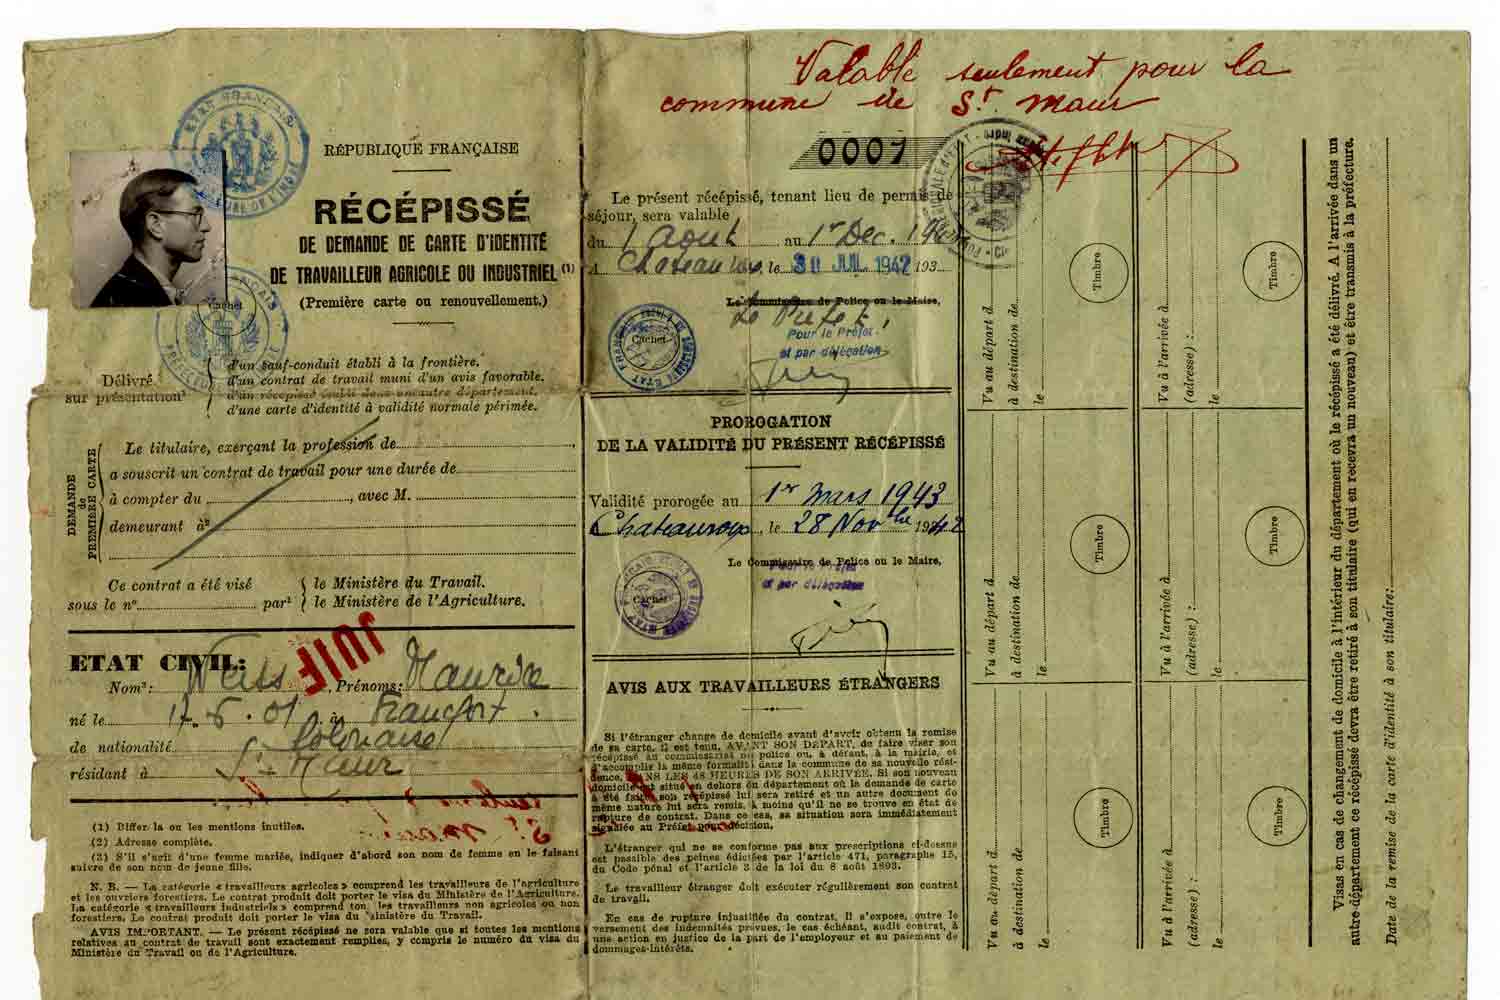 Valable seulement pour la
commune de St. Maur
ETAT FRANÇAIS
RÉPUBLIQUE FRANÇAISE
RÉCÉPISSÉ
DE DEMANDE DE CARTE D'IDENTITÉ
DE TRAVAILLEUR AGRICOLE OU INDUSTRIEL (1)
(Première carte ou renouvellement.)
Cachet
Délivré
sur présentation¹
d'un sauf-conduit établi à la frontière.
d'un contrat de travail muni d'un avis favorable.
d'un récépissé établi dans un autre département.
d'une carte d'identité à validité normale périmée.
DEMANDE
de
PREMIÈRE CARTE
Le titulaire, exerçant la profession de
a souscrit un contrat de travail pour une durée de
à compter du , avec M.
demeurant à²
Ce contrat a été visé
sous le n° par¹
le Ministère du Travail.
le Ministère de l'Agriculture.
JUIF
ETAT CIVIL:
Nom³: Weiss , Prénoms: Maurice
né le 17-6-01 à Francfort.
de nationalité Polonaise
résidant à St Maur
(1) Biffer la ou les mentions inutiles.
(2) Adresse complète.
(3) S'il s'agit d'une femme mariée, indiquer d'abord son nom de femme en le faisant
suivre de son nom de jeune fille.
N. B. — La catégorie « travailleurs agricoles » comprend les travailleurs de l'agriculture
et les ouvriers forestiers. Le contrat produit doit porter le visa du Ministère de l'Agriculture.
La catégorie « travailleurs industriels » comprend tous les travailleurs non agricoles ou non
forestiers. Le contrat produit doit porter le visa du Ministère du Travail.
AVIS IMPORTANT. — Le présent récépissé ne sera valable que si toutes les mentions
relatives au contrat de travail sont exactement remplies, y compris le numéro du visa du
Ministère du Travail ou de l'Agriculture.
0007
Le présent récépissé, tenant lieu de permis de
séjour, sera valable
du 1 Aout au 1er Dec. 194
A Chateauroux, le 30 JUL 1942 193
Le Commissaire de Police ou le Maire,
Le Préfet,
Pour le Préfet
et par délégation
Cachet
PROROGATION
DE LA VALIDITÉ DU PRÉSENT RÉCÉPISSÉ
Validité prorogée au 1er mars 1943
Chateauroux, le 28 Novbre 1942
Le Commissaire de Police ou le Maire,
et par délégation
Cachet
AVIS AUX TRAVAILLEURS ÉTRANGERS
Si l'étranger change de domicile avant d'avoir obtenu la remise
de sa carte, il est tenu, AVANT SON DÉPART, de faire viser son
récépissé au commissariat de police ou, à défaut, à la mairie, et
d'accomplir la même formalité dans la commune de sa nouvelle rési-
dence, DANS LES 48 HEURES DE SON ARRIVÉE. Si son nouveau
domicile est situé en dehors du département où la demande de carte
a été faite, son récépissé lui sera retiré et un autre document de
même nature lui sera remis, à moins qu'il ne se trouve en état de
rupture de contrat. Dans ce cas, sa situation sera immédiatement
signalée au Préfet pour décision.
L'étranger qui ne se conforme pas aux prescriptions ci-dessus
est passible des peines édictées par l'article 471, paragraphe 15,
du Code pénal et l'article 3 de la loi du 8 août 1893.
Le travailleur étranger doit exécuter régulièrement son contrat
de travail.
En cas de rupture injustifiée du contrat, il s'expose, outre le
versement des indemnités prévues, le cas échéant, audit contrat, à
une action en justice de la part de l'employeur et au paiement de
dommages-intérêts.
Vu au départ d
à destination de
le
Timbre
Vu à l'arrivée à
(adresse) :
le
Timbre
Vu au départ d
à destination de
le
Timbre
Vu à l'arrivée à
(adresse) :
le
Timbre
Vu au départ d
à destination de
le
Timbre
Vu à l'arrivée à
(adresse) :
le
Timbre
Visas en cas de changement de domicile à l'intérieur du département où le récépissé a été délivré. A l'arrivée dans un
autre département ce récépissé devra être retiré à son titulaire (qui en recevra un nouveau) et être transmis à la préfecture.
Date de la remise de la carte d'identité à son titulaire: